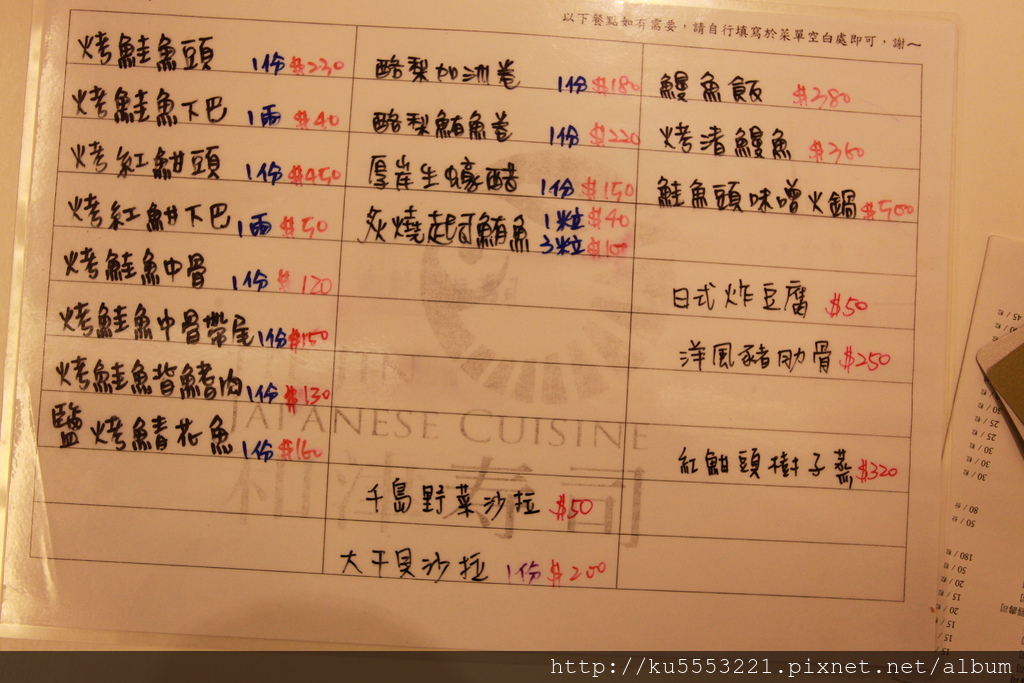 以下餐點如有需要，請自行填寫於菜單空白處即可，謝～
烤鮭魚頭 1份 $230
烤鮭魚下巴 1兩 $40
烤紅魽頭 1份 $450
烤紅魽下巴 1兩 $50
烤鮭魚中骨 1份 $120
烤鮭魚中骨帶尾 1份 $150
烤鮭魚背鰭肉 1份 $130
鹽烤鯖花魚 1份 $160
酪梨加洲卷 1份 $180
酪梨鮪魚卷 1份 $220
厚岸生蠔醋 1份 $150
炙燒起司鮪魚 1粒 $40
3粒 $100
千島野菜沙拉 $50
大干貝沙拉 1份 $200
鰻魚飯 $280
烤渚鰻魚 $360
鮭魚頭味噌火鍋 $500
日式炸豆腐 $50
洋風豬肋骨 $250
紅魽頭樹子蒸 $320
JAPANESE CUISINE
和津寿司
http://ku5553221.pixnet.net/album